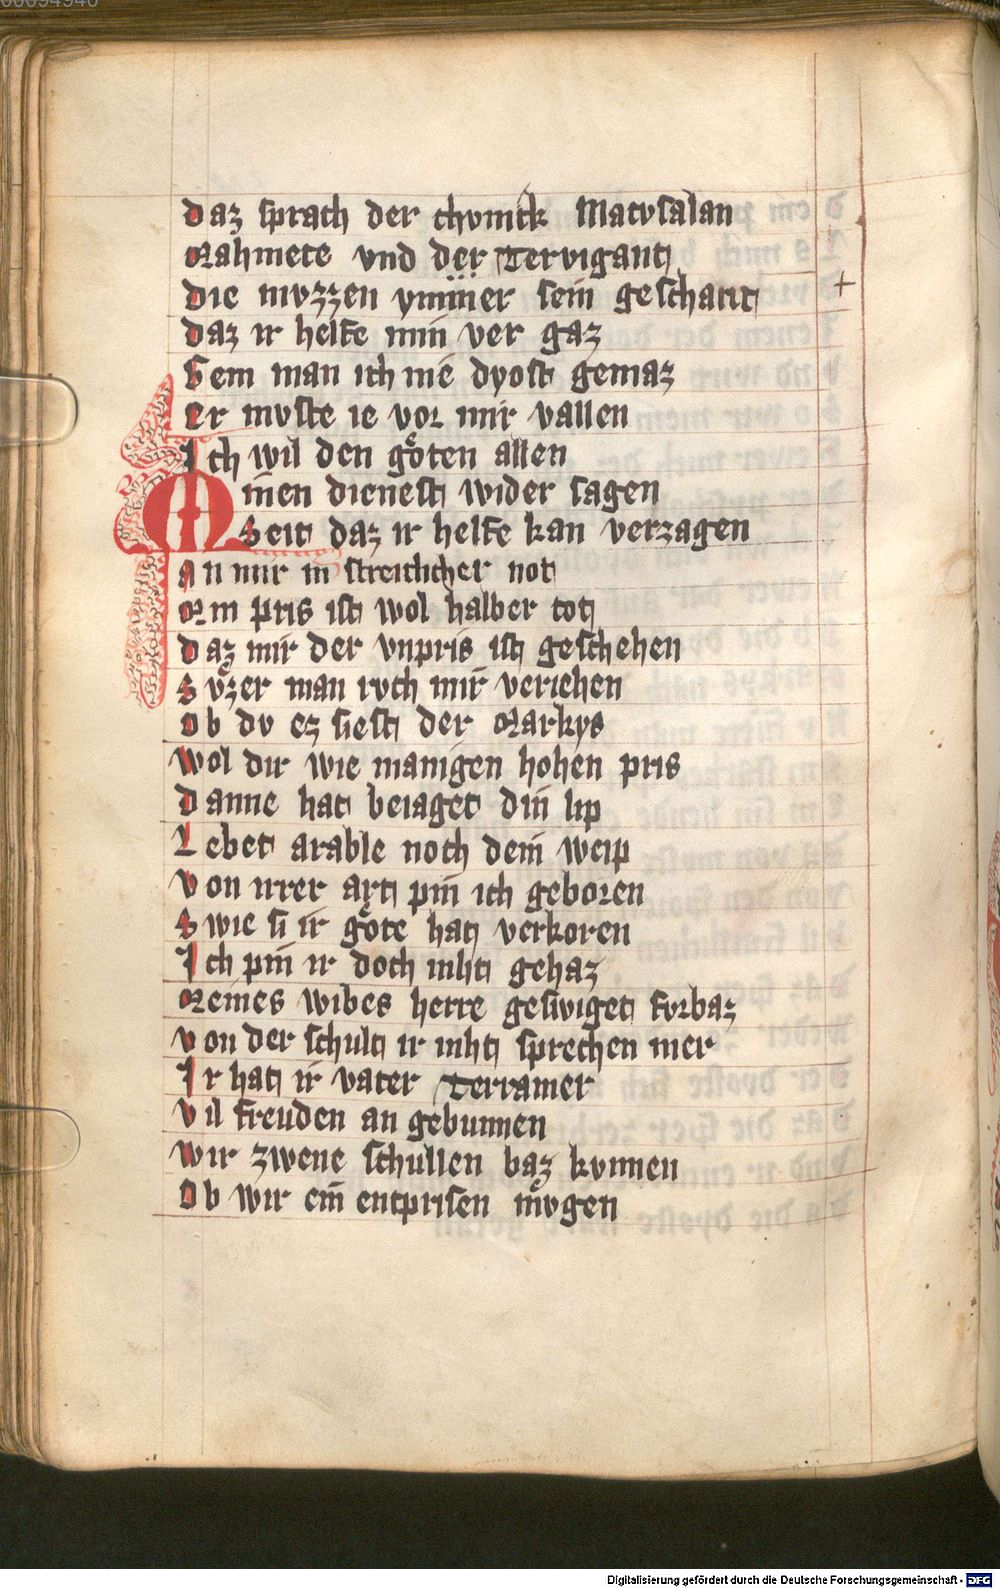 00094940
daz sprach der chvnick Matvsalan
Mahmete vnd der Tervigant
die mvzzen ymmer sein geschant
daz ir helfe min ver gaz
Swem man ich nie dyost gemaz
er mvste ie vor mir vallen
Ich wil den göten allen
Minen dienest wider sagen
Seit daz ir helfe kan verzagen
An mir in streitlicher not
Min pris ist wol halber tot
daz mir der vnpris ist geschehen
Svͤzer man rvch mir veriehen
ob dv ez siest der Markys
wol dir wie manigen hohen pris
danne hat beiaget din lip
Lebet arable noch dein weip
von irer art pin ich geboren
Swie si ir göte hat verkoren
Ich pin ir doch niht gehaz
Reines wibes herre geswiget fvrbaz
von der schult ir niht sprechen mer
Ir hat ir vater Terramer
vil freuden an gebunnen
wir zwene schullen baz kvnnen
Ob wir ein entprisen mͦvgen
Digitalisierung gefördert durch die Deutsche Forschungsgemeinschaft - DFG